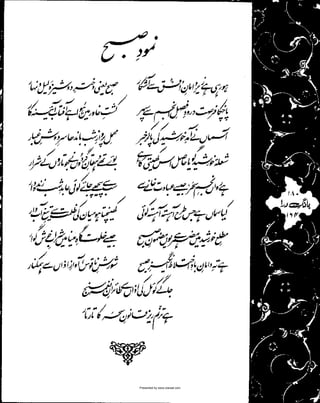 نمودِ صبح
ہو رہی ہے زیرِ دامانِ افق سے آشکار صبح یعنی دخترِ دوشیزۂ لیل و نہار
پا چکا فرصت درودِ فصلِ انجم سے سپہر کشتِ خاور میں ہوا ہے آفتاب آئینہ کار
آسماں نے آمدِ خورشید کی پا کر خبر محملِ پروازِ شب باندھا سرِ دوشِ غبار
شعلۂ خورشید گویا حاصل اس کھیتی کا ہے بوئے تھے دہقانِ گردوں نے جو تاروں کے شرار
ہے رواں نجمِ سحر، جیسے عبادت خانے سے سب سے پیچھے جائے کوئی عابدِ شب زندہ دار
کیا سماں ہے جس طرح آہستہ آہستہ کوئی کھینچتا ہو میان کی ظلمت سے تیغِ آب دار
مطلعِ خورشید میں مضمر ہے یوں مضمونِ صبح جیسے خلوت گاہِ مینا میں شرابِ خوش گوار
ہے تہِ دامانِ باد اختلاط انگیزِ صبح شورشِ ناقوس آوازِ اذاں سے ہمکنار
جاگے کوئل کی اذاں سے طائرانِ نغمہ سنج
ہے ترنم ریز قانونِ سحر کا تار تار
بانگِ درا
Presented by www.ziaraat.com